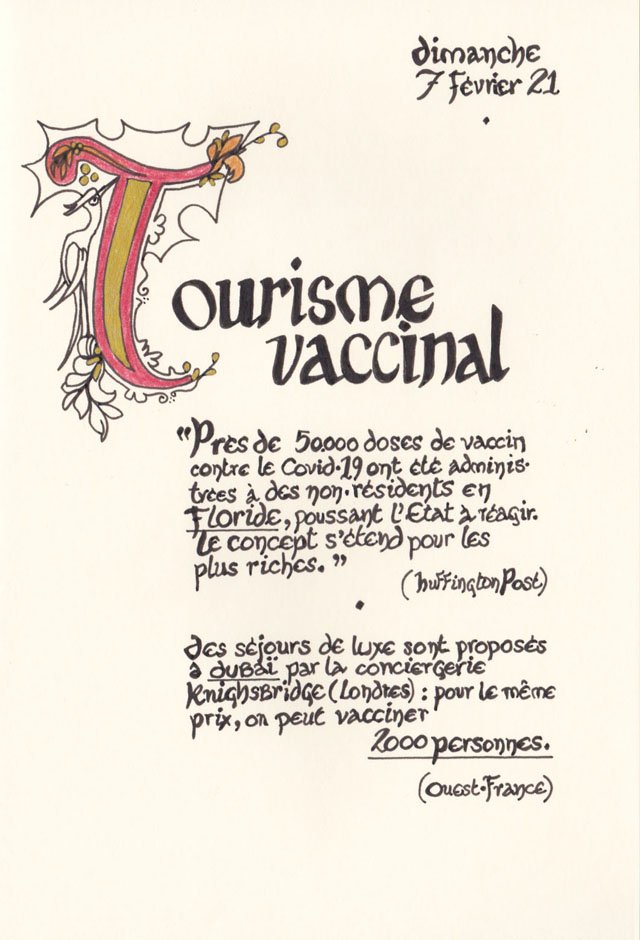 dimanche
7 février 21
Tourisme
vaccinal
"Près de 50.000 doses de vaccin
contre le Covid-19 ont été adminis-
trées à des non-résidents en
FLORIDE, poussant l'Etat à réagir.
Le concept s'étend pour les
plus riches."
(huffingtonPost)
des séjours de luxe sont proposés
à DUBAÏ par la conciergerie
KnighsBridge (Londres) : pour le même
prix, on peut vacciner
2000 personnes.
(Ouest-France)